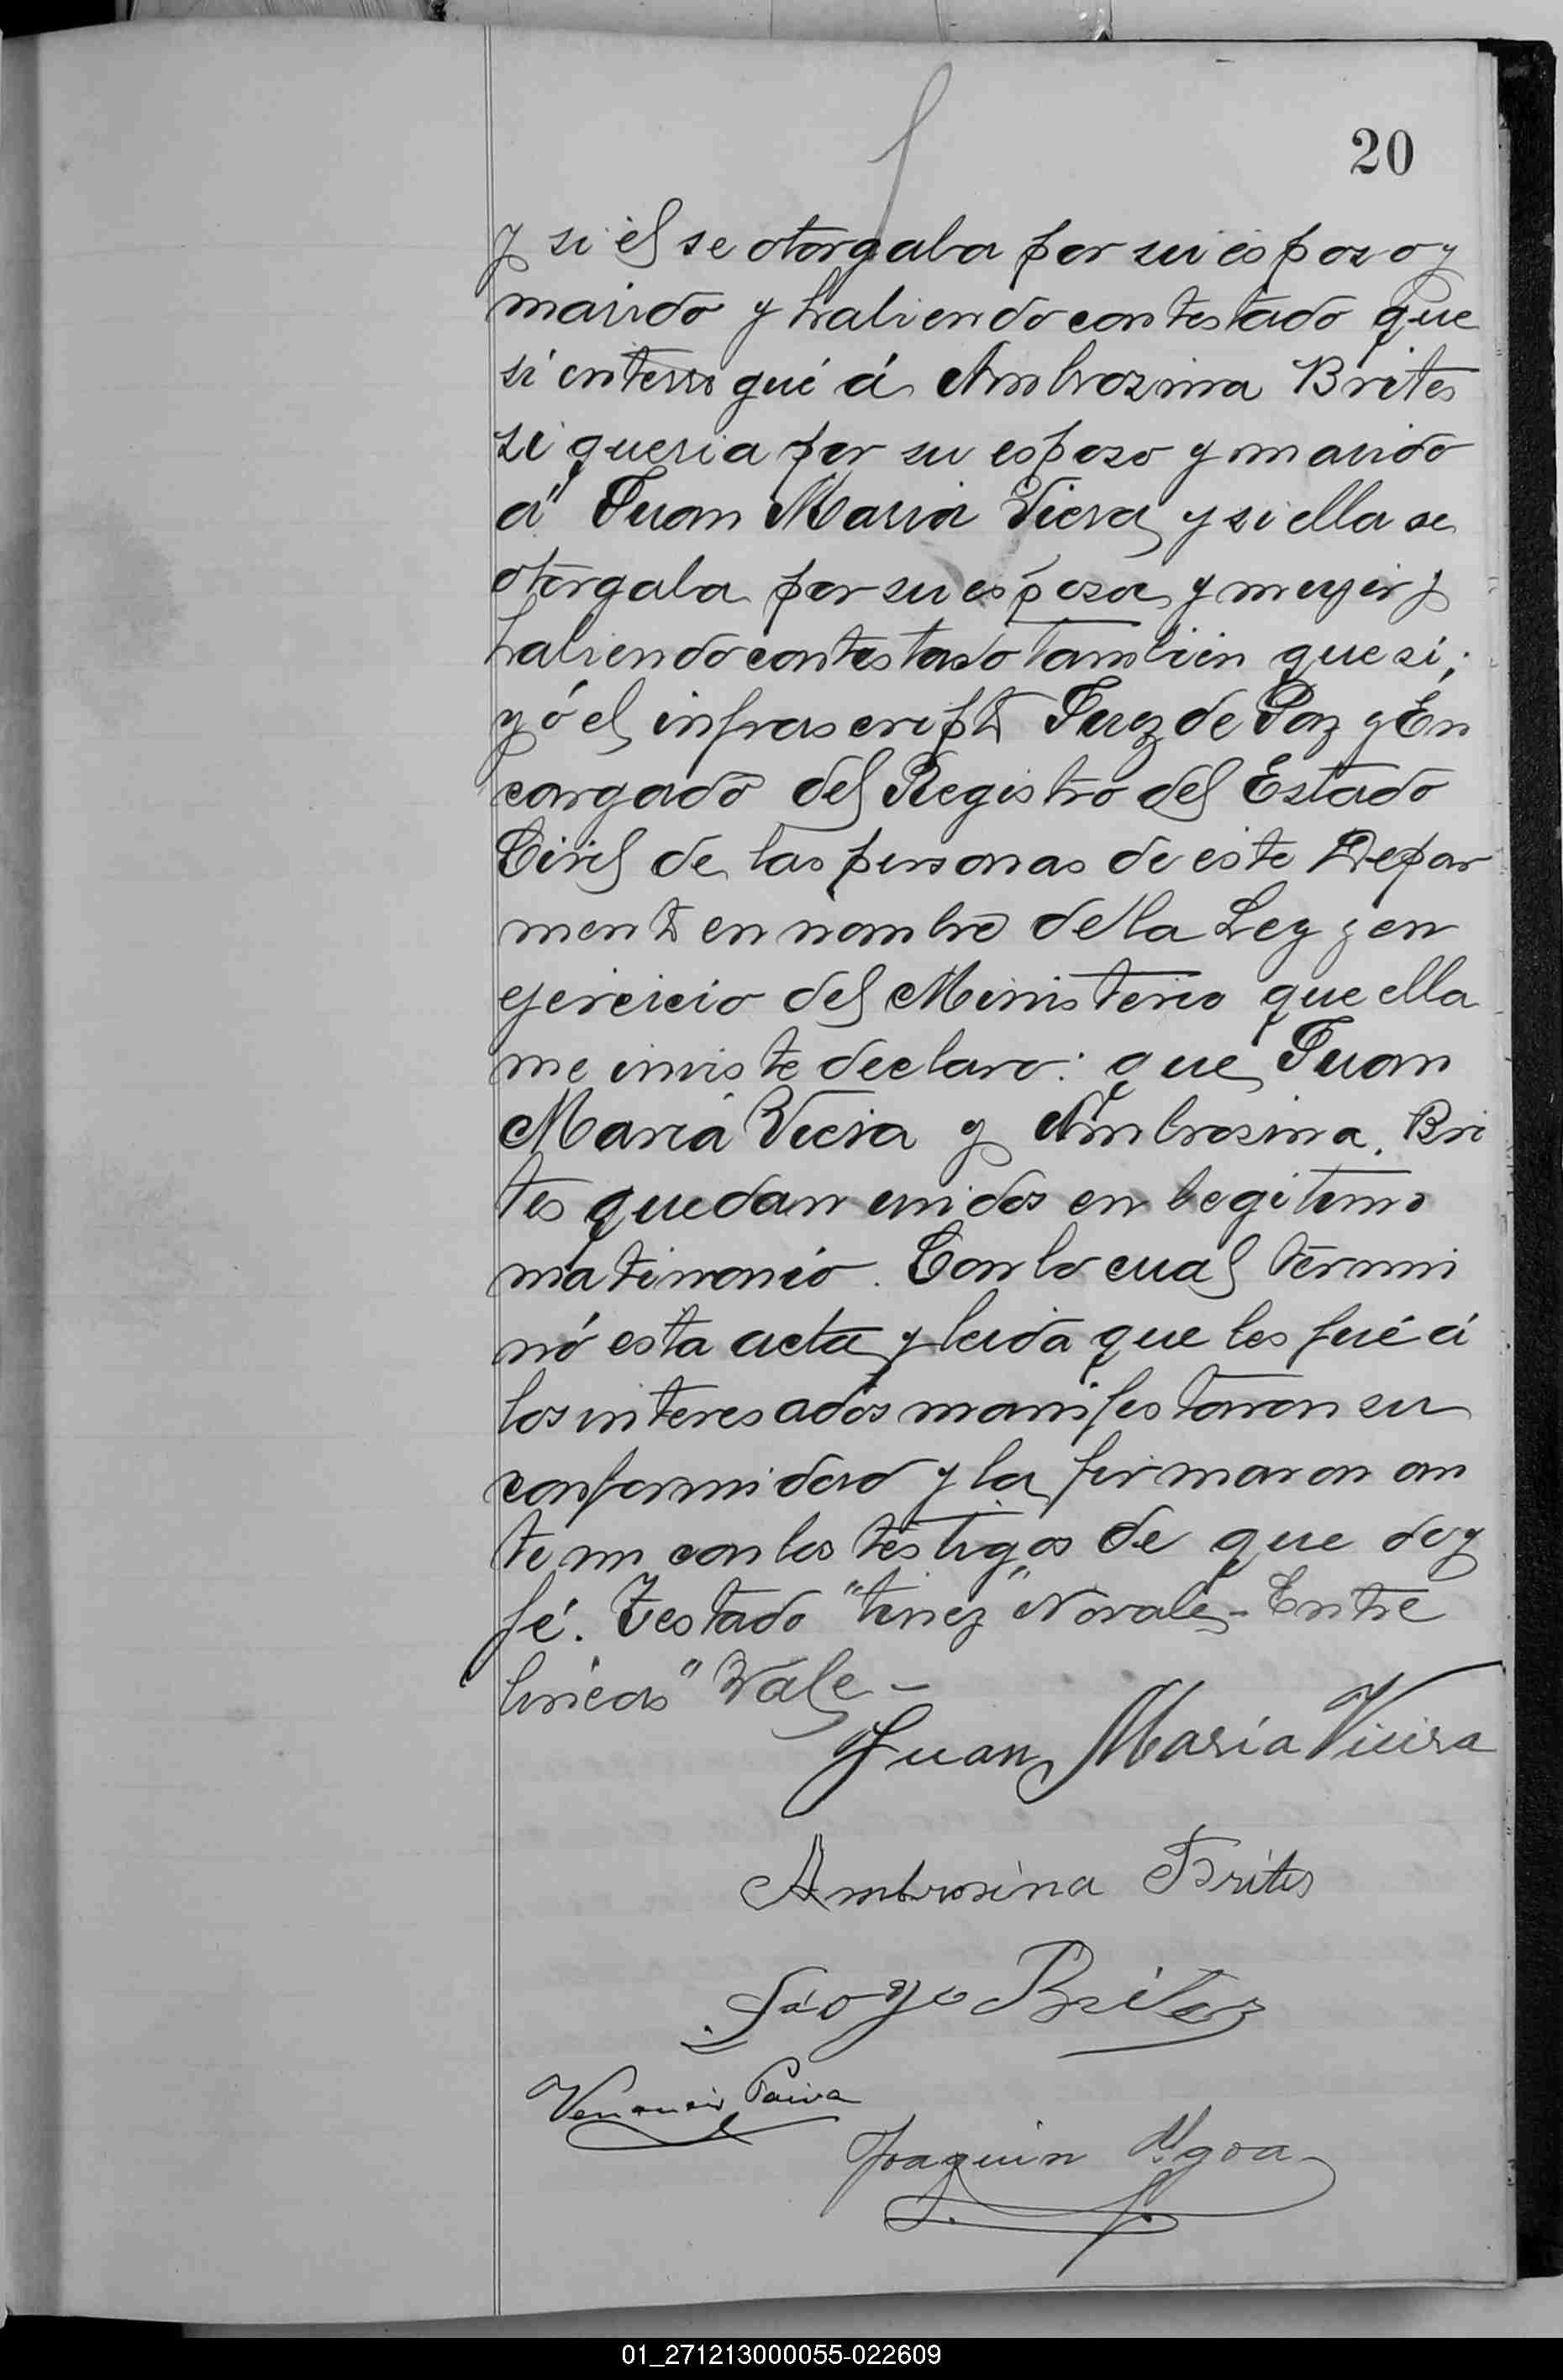 20
y si él se otorgaba por su esposo y
marido y habiendo contestado que
sí interrogué á Ambrozina Brites
si queria por su esposo y marido
á Juan Maria Viera y si ella se
otorgaba por su esposa y mujer y
habiendo contestado tambien que si;
yó el infrascripto Juez de Paz y En
cargado del Registro del Estado
Civil de las personas de este Depar
mento en nombre de la Ley y en
ejercicio del Ministerio que ella
me inviste declaro: que Juan
Maria Vieira y Ambrosina Bri
tes quedan unidos en legitimo
matimonio. Con lo cual termi
nó esta acta y leida que les fué á
los interesados manifestaron su
conformidad y la firmaron an
te mi con los testigos de que doy
fé. Testado " " No vale - Entre
lineas" Vale -
Juan María Vieira
Ambrosina Brites
Brites
Venancio Paiva
Joaquin
01_271213000055-022609